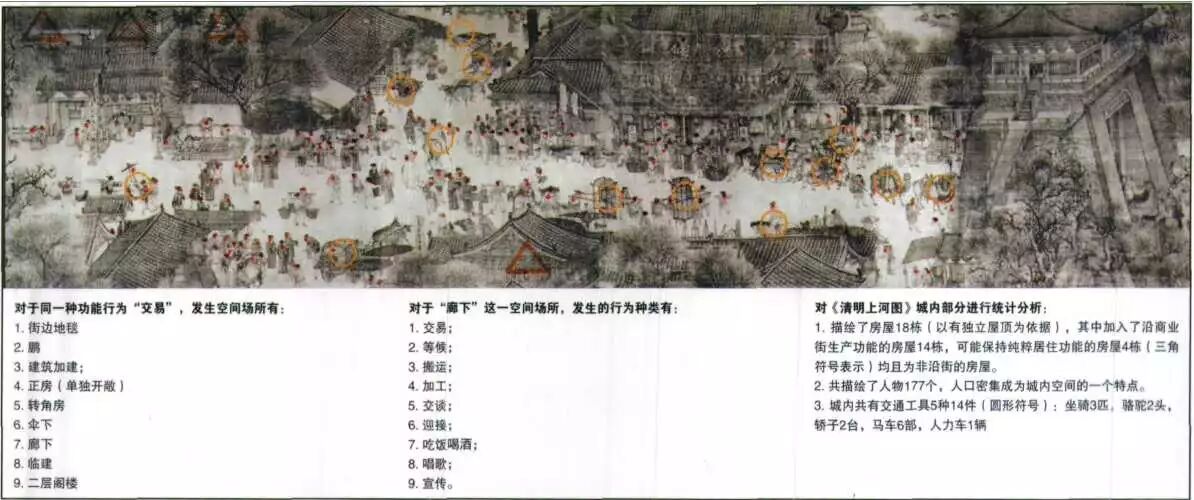 对于同一种功能行为“交易”，发生空间场所有：
1. 街边地毯
2. 鹏
3. 建筑加建；
4. 正房（单独开敞）
5. 转角房
6. 伞下
7. 廊下
8. 临建
9. 二层阁楼
对于“廊下”这一空间场所，发生的行为种类有：
1. 交易；
2. 等候；
3. 搬运；
4. 加工；
5. 交谈；
6. 迎接；
7. 吃饭喝酒；
8. 唱歌；
9. 宣传。
对《清明上河图》城内部分进行统计分析：
1. 描绘了房屋18栋（以有独立屋顶为依据），其中加入了沿商业
街生产功能的房屋14栋，可能保持纯粹居住功能的房屋4栋（三角
符号表示）均且为非沿街的房屋。
2. 共描绘了人物177个，人口密集成为城内空间的一个特点。
3. 城内共有交通工具5种14件（圆形符号）：坐骑3匹，骆驼2头，
轿子2台，马车6部，人力车1辆